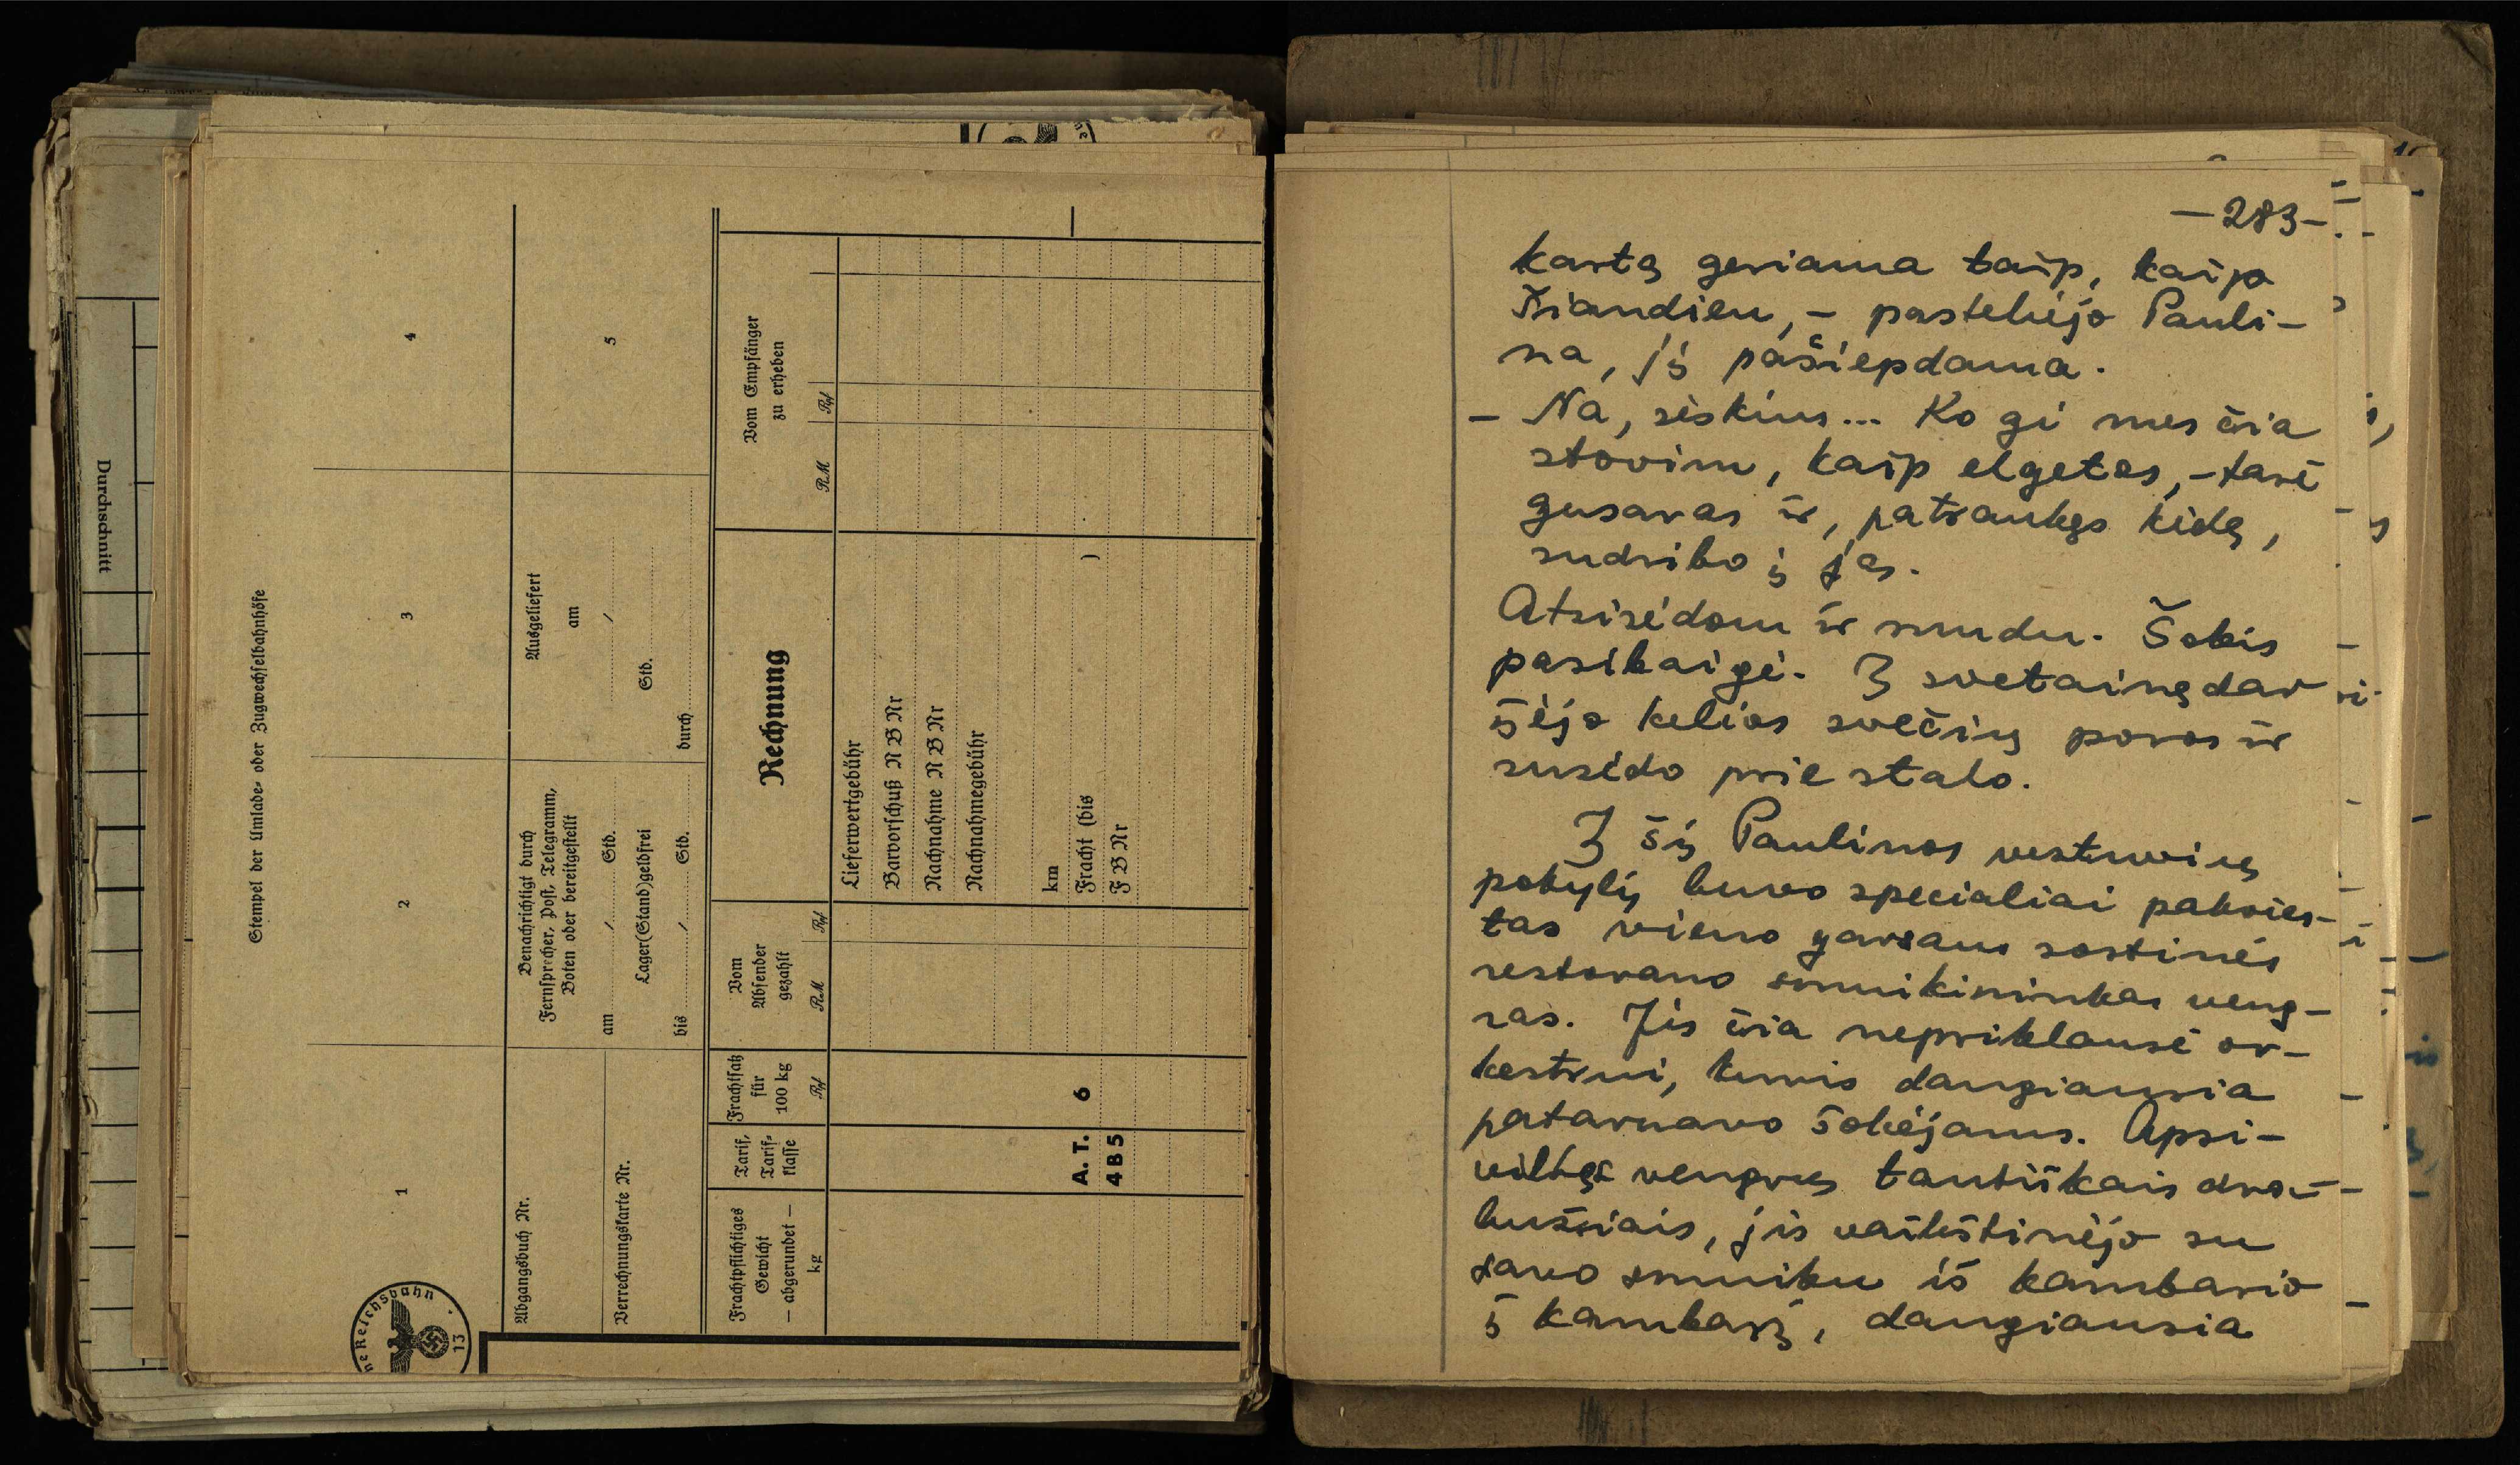 Durchschnitt
Stempel der Umlade- oder Zugwechselbahnhöfe
1
2
3
4
Abgangsbuch Nr.
Verrechnungskarte Nr.
Benachrichtigt durch
Fernsprecher, Post, Telegramm,
Boten oder bereitgestellt
am / Std.
Lager(Stand)geldfrei
bis / Std.
Ausgeliefert
am
/
Std.
durch
5
Frachtpflichtiges
Gewicht
— abgerundet —
kg
Tarif,
Tarif-
klasse
Frachtsatz
für
100 kg
Rpf
Vom
Absender
gezahlt
RM Rpf
Rechnung
Vom Empfänger
zu erheben
RM Rpf
Lieferwertgebühr
Barvorschuß N B Nr
Nachnahme N B Nr
Nachnahmegebühr
km
A. T. 6 Fracht (bis )
4 B 5 F B Nr
ne Reichsbahn
13
—283—
kartą geriama taip, kaip
šiandien, – pastebėjo Pauli–
na, jį pašiepdama.
– Na, sėskim... Ko gi mes čia
stovim, kaip elgetos, – tarė
gusaras ir, patraukęs kėdę,
sudribo į ją.
Atsisėdom ir mudu. Šokis
pasibaigė. Į svetainę dar
įėjo kelios svečių poros ir
susėdo prie stalo.
Į šį Paulinos vestuvių
pobylį buvo specialiai pakvies–
tas vieno garsaus sostinės
restorano smuikininkas veng–
ras. Jis čia nepriklausė or–
kestrui, kuris daugiausia
patarnavo šokėjams. Apsi–
vilkęs vengrų tautiškais dra–
bužiais, jis vaikštinėjo su
savo smuiku iš kambario
į kambarį, daugiausia